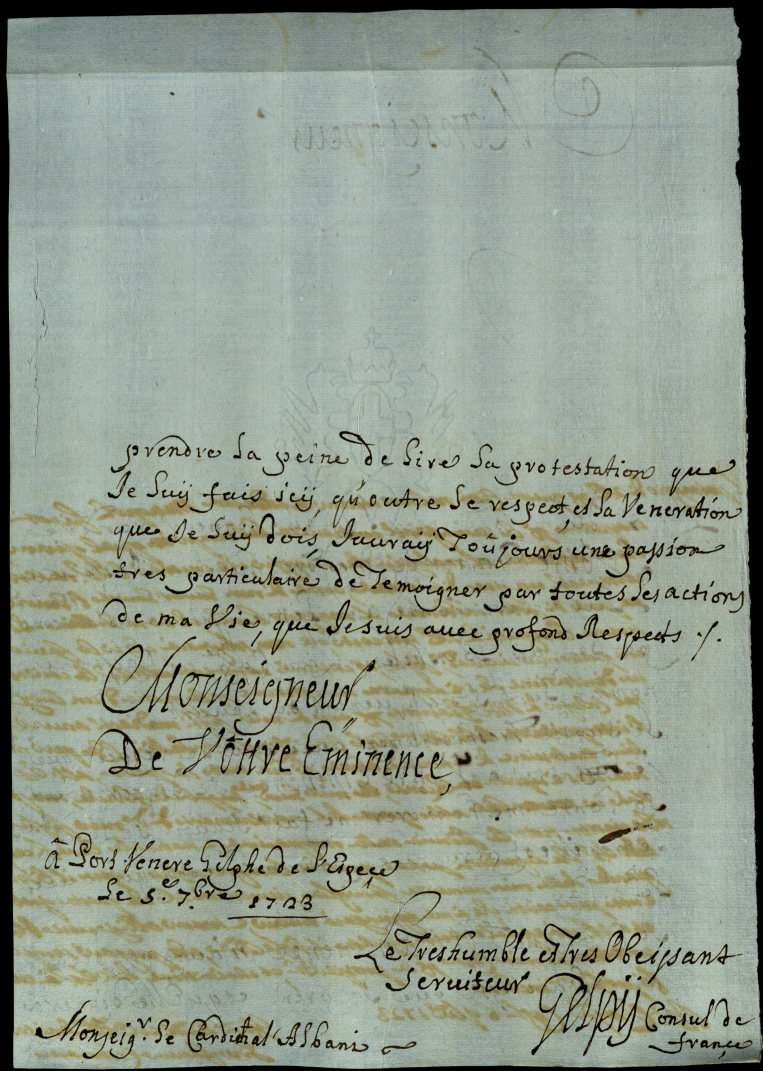 prendre la peine de lire la protestation que
Je luy fais icy, qu'outre le respect, et la Veneration
que Je luy dois, Jauray Toûjours une passion
tres particulaire de Temoigner par toutes les actions
de ma Vie, que Je suis avec profond Respects ./.
Monseigneur
De Vôttre Eminence,
â Port Venere Golphe de l'
le 5.e 7.bre 1723
Le Treshumble et Tres Obeissant
Serviteur
Gelpÿ Consul de
france
Monseigr. le Cardinal Albani